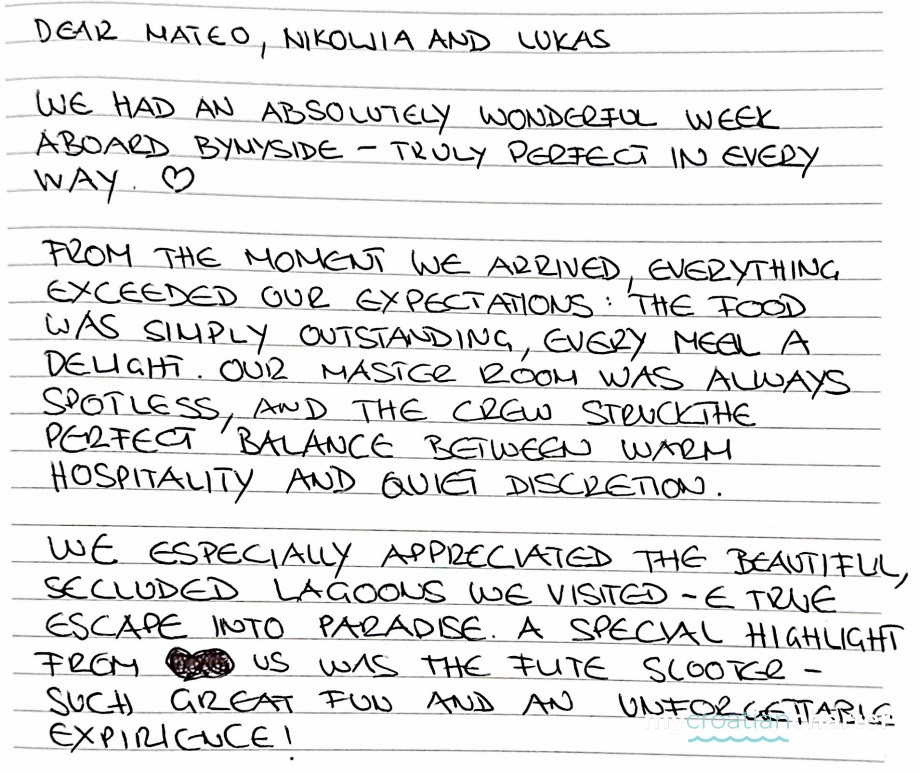 DEAR MATEO, NIKOLIJA AND LUKAS
WE HAD AN ABSOLUTELY WONDERFUL WEEK
ABOARD BYMYSIDE – TRULY PERFECT IN EVERY
WAY. ♡
FROM THE MOMENT WE ARRIVED, EVERYTHING
EXCEEDED OUR EXPECTATIONS: THE FOOD
WAS SIMPLY OUTSTANDING, EVERY MEEL A
DELIGHT. OUR MASTER ROOM WAS ALWAYS
SPOTLESS, AND THE CREW STRUCKTHE
PERFECT BALANCE BETWEEN WARM
HOSPITALITY AND QUIET DISCRETION.
WE ESPECIALLY APPRECIATED THE BEAUTIFUL,
SECLUDED LAGOONS WE VISITED - E TRUE
ESCAPE INTO PARADISE. A SPECIAL HIGHLIGHT
FROM US WAS THE FLITE SCOOTER –
SUCH GREAT FUN AND AN UNFORGETTABLE
mycroatiancharter
EXPIRIENCE!